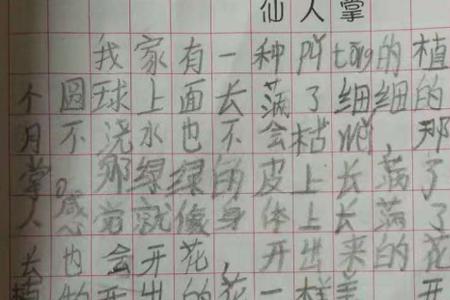 仙人掌
我家有一种pǔ tōng的植
个圆球上面长满了细细的
月不浇水也不会枯wěi,那
掌。那绿绿的皮上长满了
人感觉就像身体上长满了
长也会开花,开出来的花
植物开出的花一样美 开